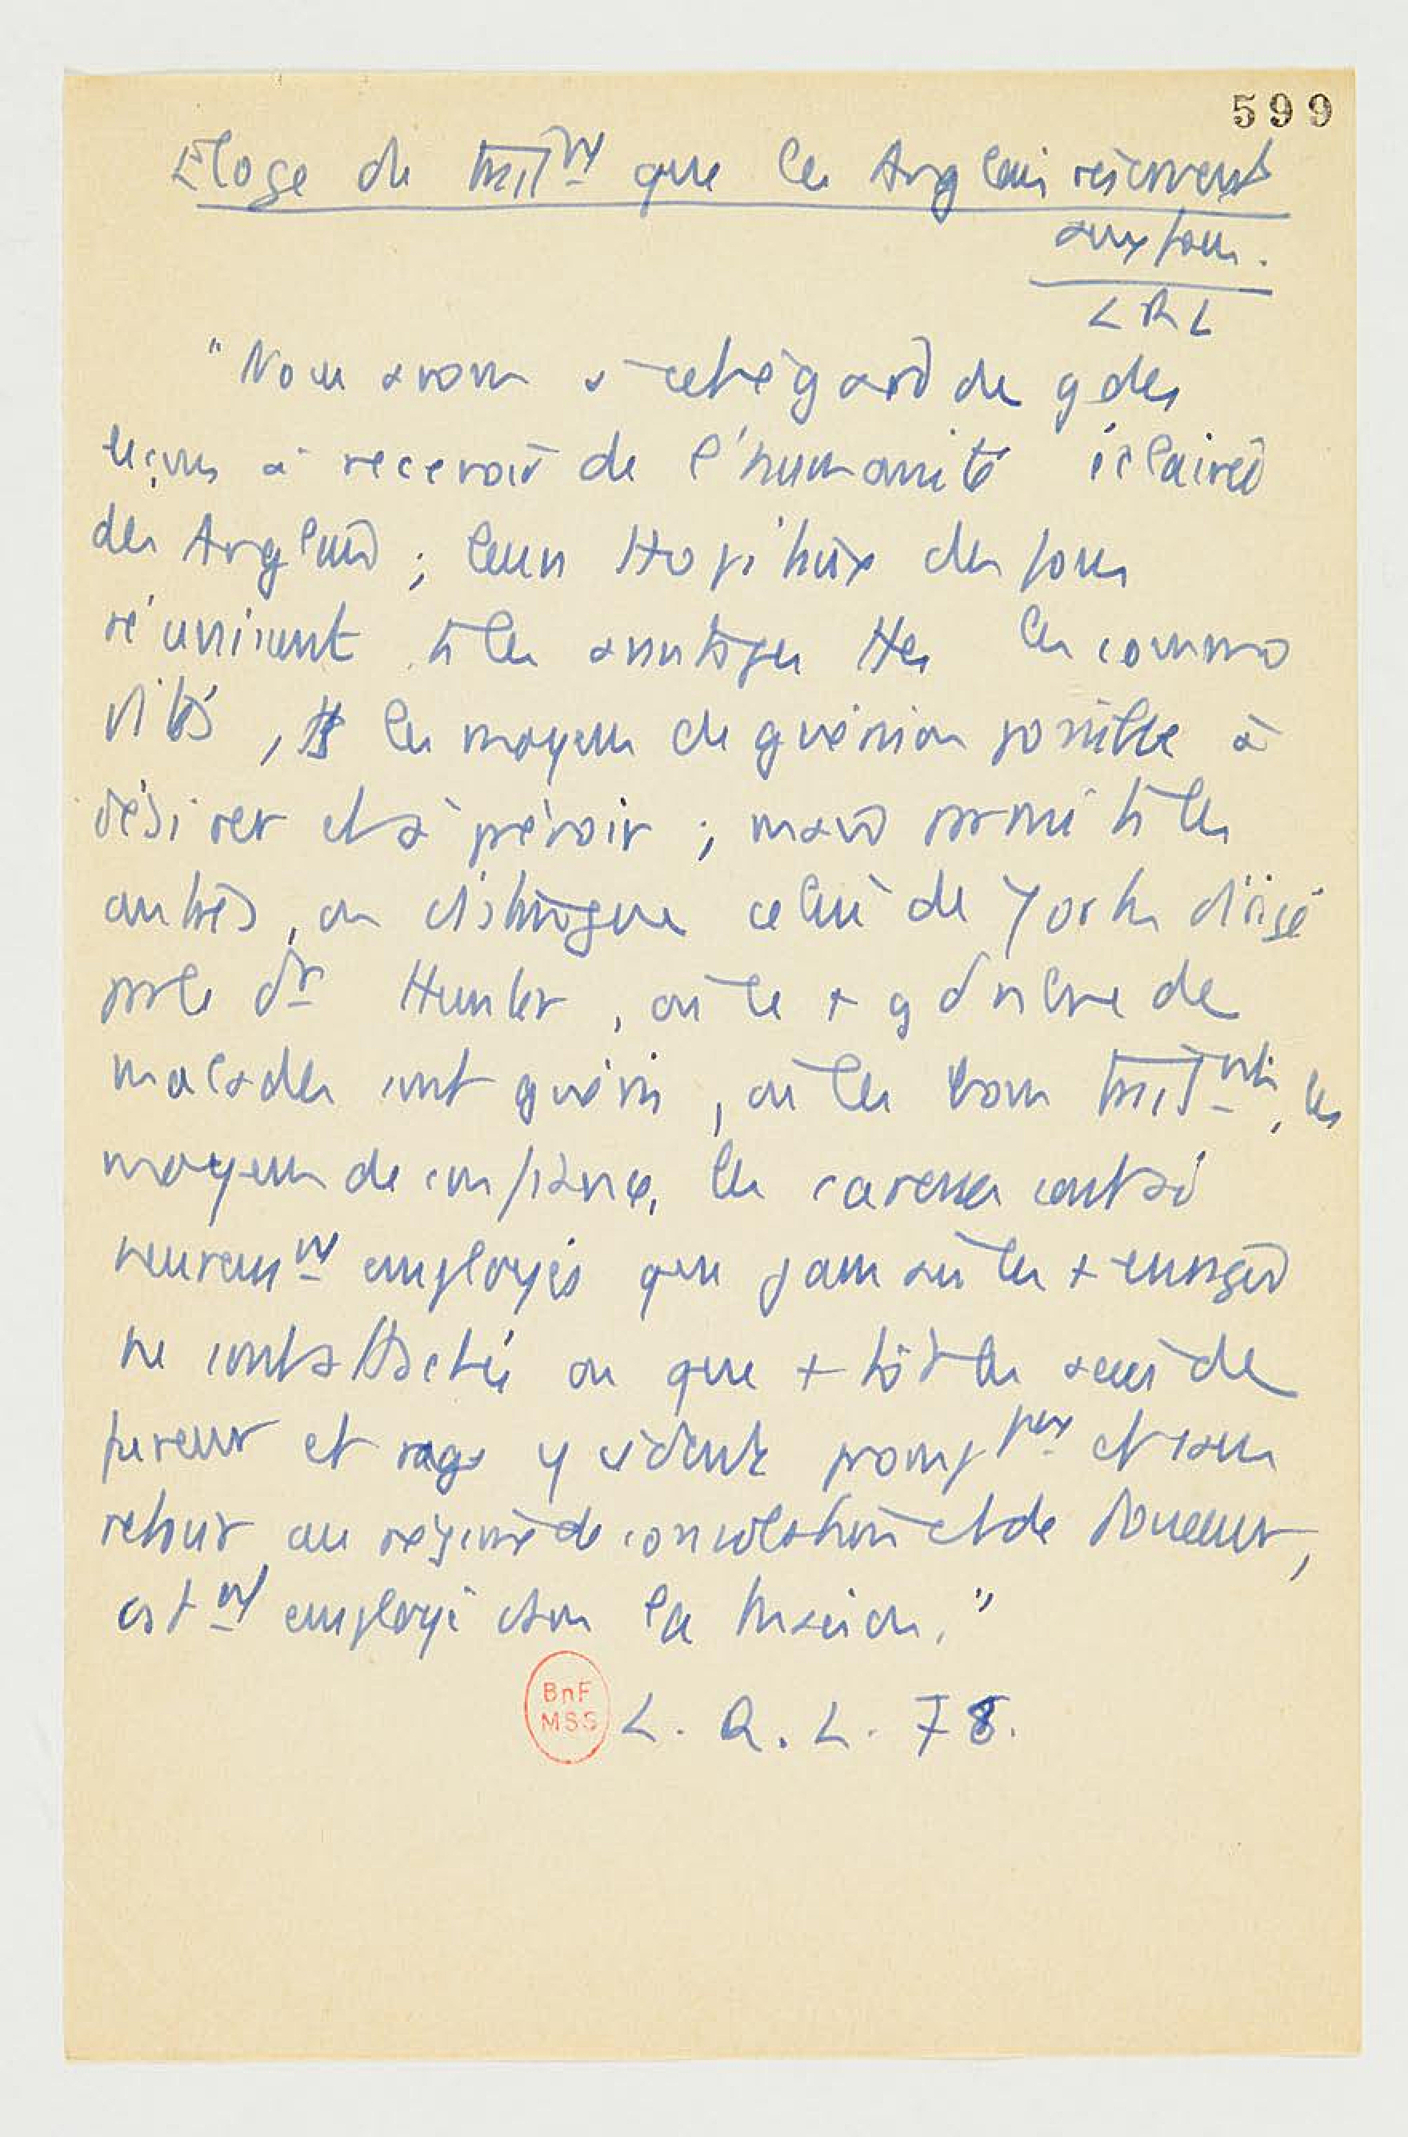 599
Éloge du trait^nt que les Anglais réservent
aux fous.
LRL
"Nous avons à cet égard de gdes
leçons à recevoir de l'humanité éclairée
des Anglais ; leurs Hopitaux des fous
réunissent ts les avantages ttes les commo
dités, ts les moyens de guérison possible à
désirer et à prévoir ; mais parmi ts les
autres, on distingue celui de York dirigé
par le dr Hunter, où le + gd nbre de
malades sont guéris, où les bons trait^nts, les
moyens de confiance, les caresses sont si
heureus^nt employés que jamais les + enragés
ne sont attachés ou que + tôt les accès de
fureur et rage y cèdent prompt^nt et sans
retour au régime de consolation et de douceur,
ast^nt employé dans la maison."
BnF
MSS
L. R. L. 78.